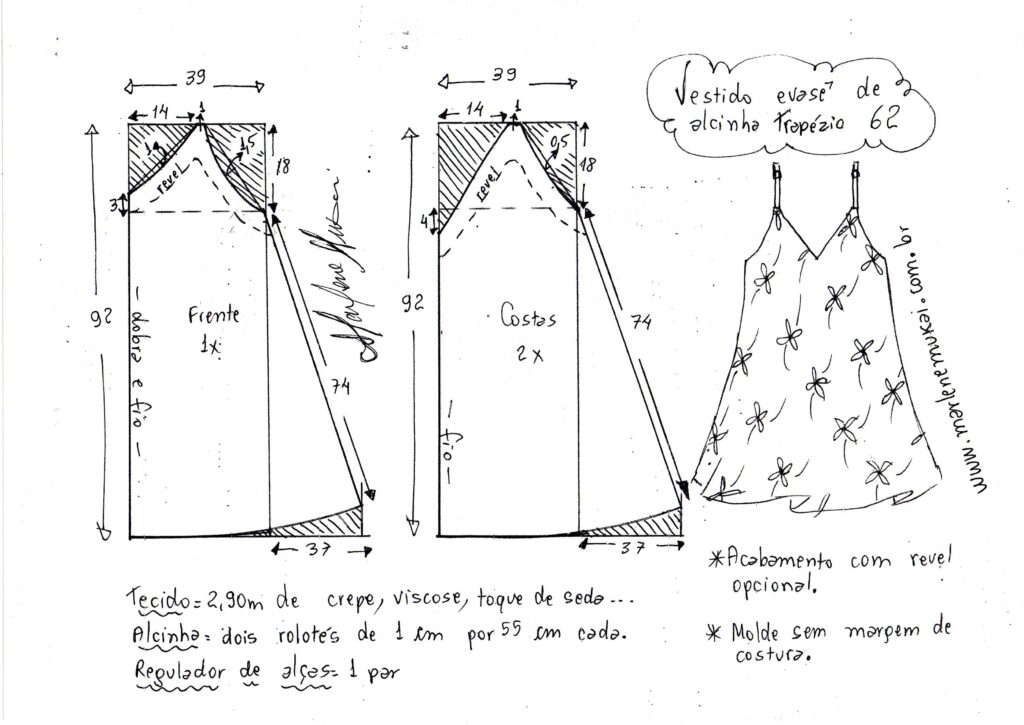 Vestido evasê de
alcinha trapézio 62
39
14
1
1
1,5
18
revel
3
92
- dobra e fio -
Frente
1x
74
37
Marlene Mukai
39
14
1
0,5
18
revel
4
92
- fio -
Costas
2x
74
37
www.marlenemukai.com.br
Tecido=2,90m de crepe, viscose, toque de seda...
Alcinha= dois rolotês de 1 cm por 55 cm cada.
Regulador de alças=1 par
*Acabamento com revel
opcional.
* Molde sem margem de
costura.